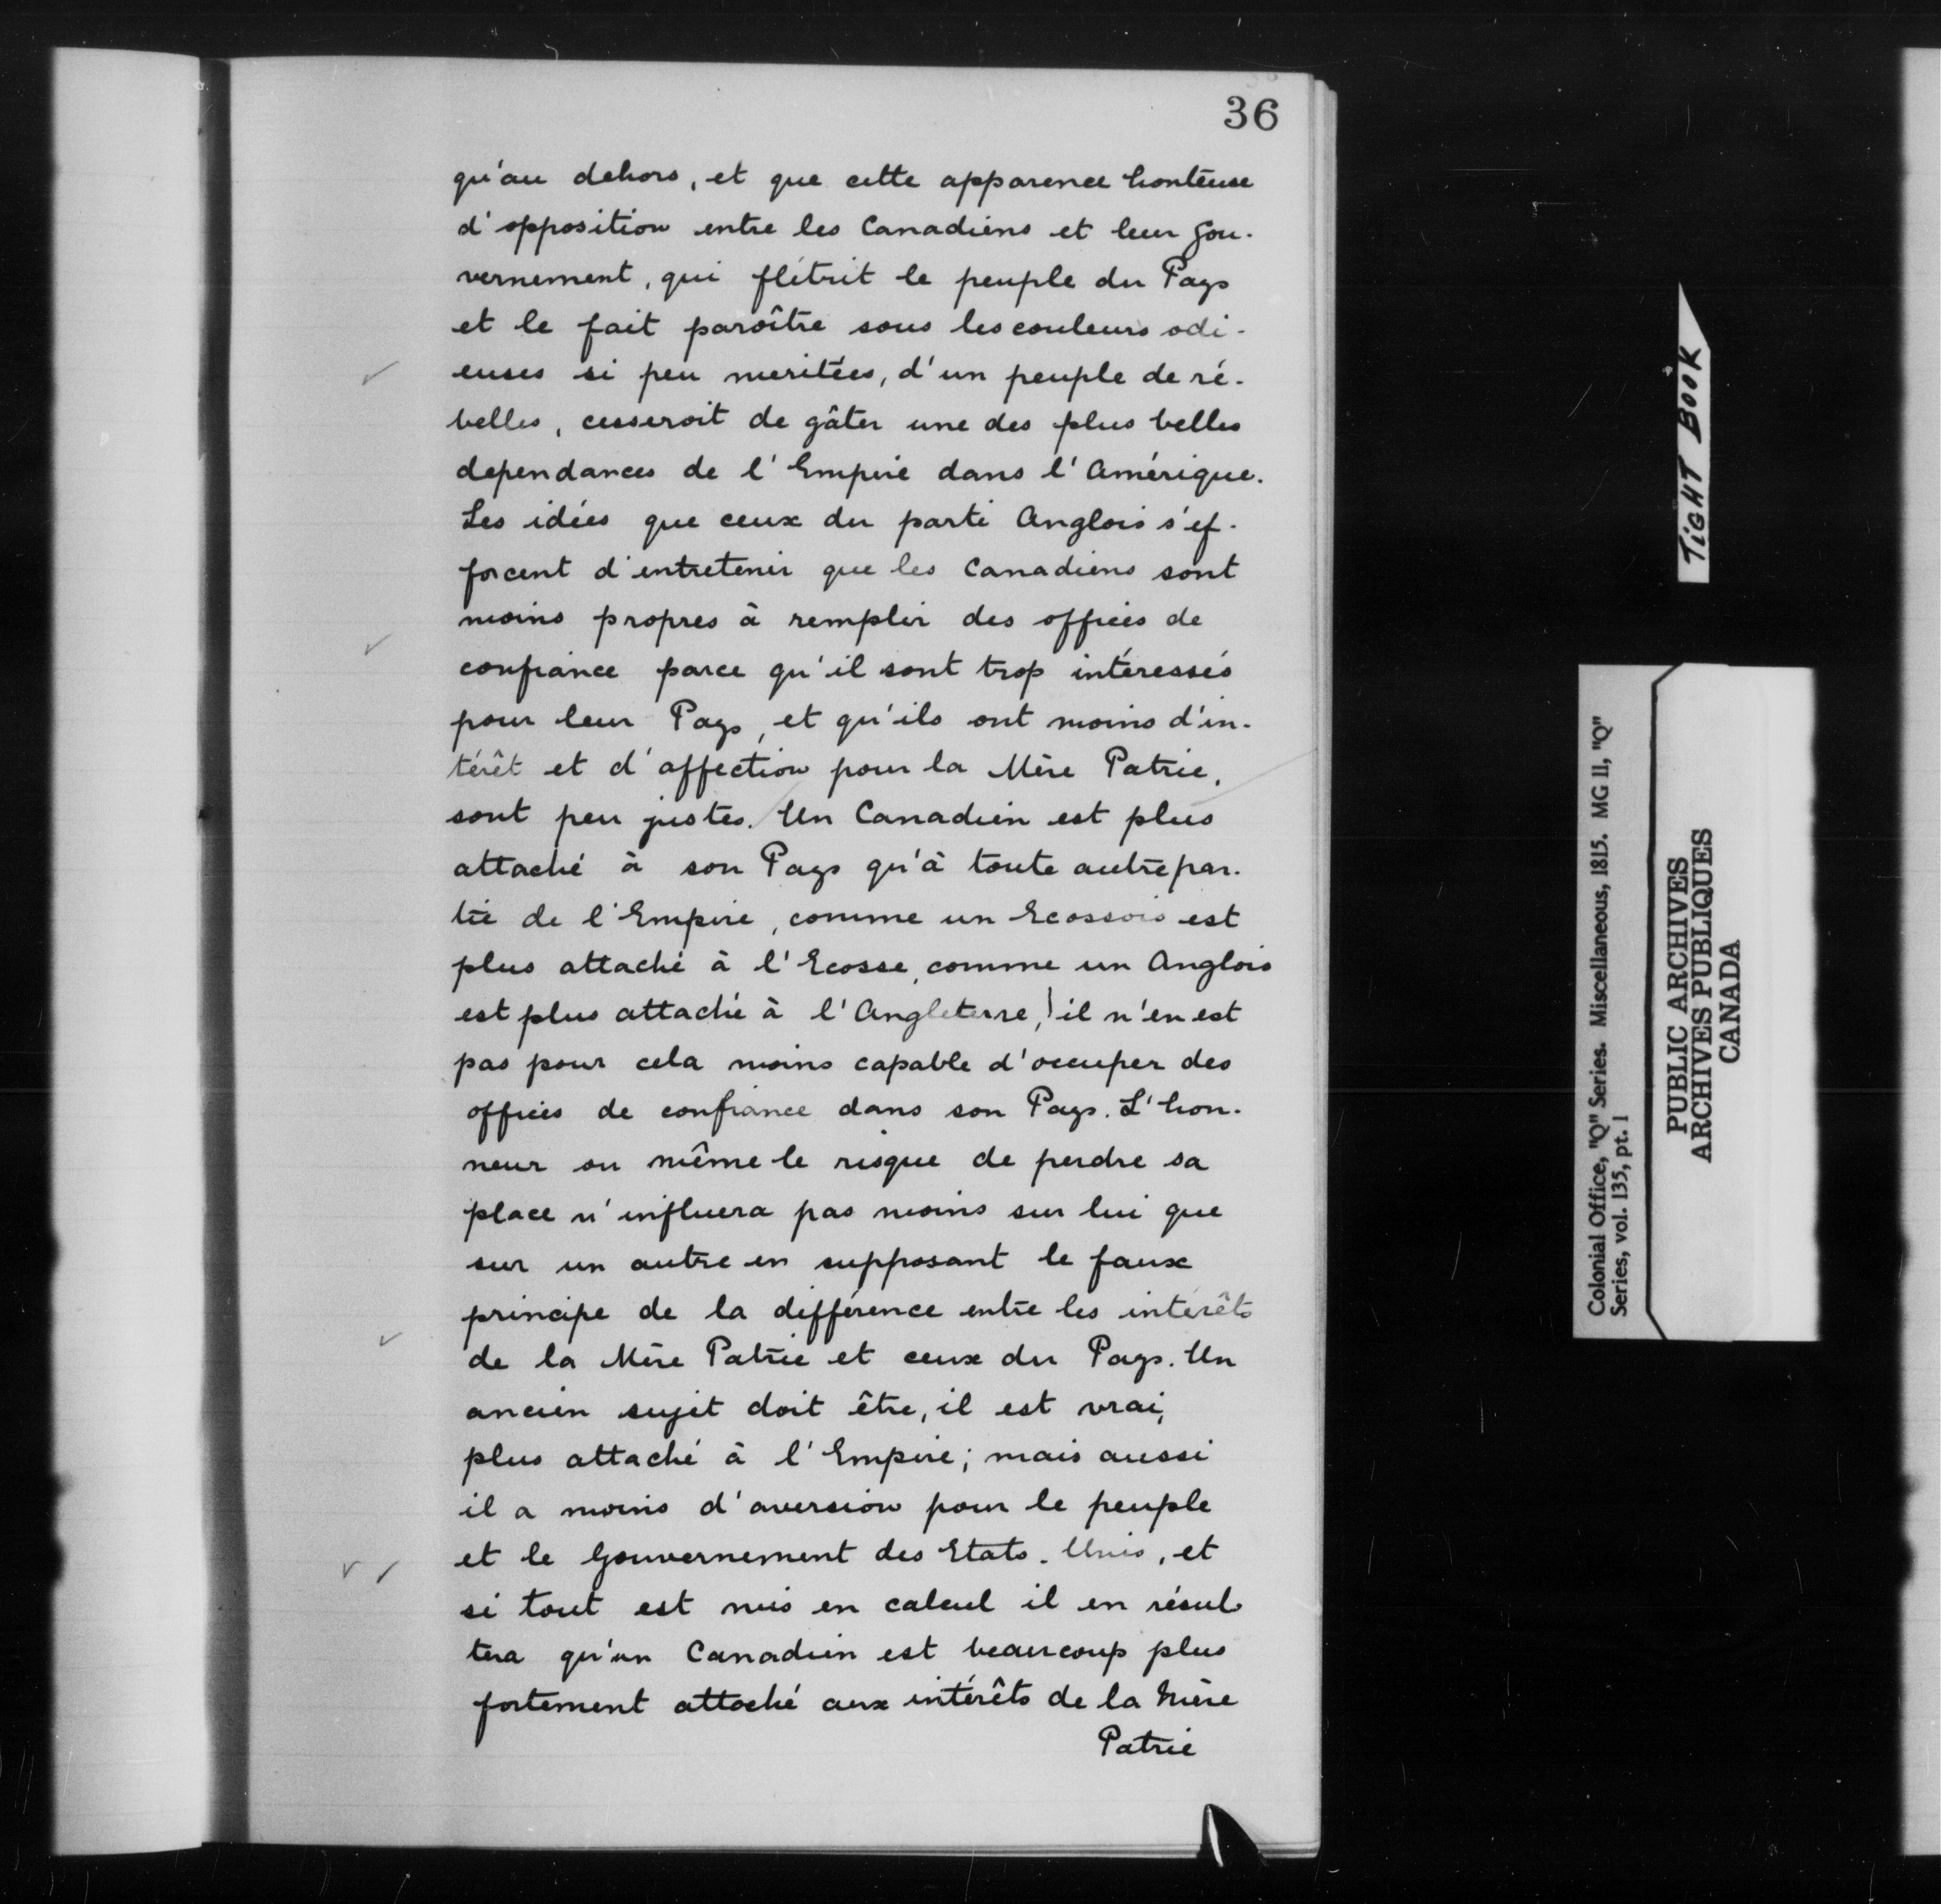 36
qu'au dehors, et que cette apparence honteuse
d'opposition entre les Canadiens et leur Gou-
vernement, qui flétrit le peuple du Pays
et le fait paroître sous les couleurs odi-
euses si peu meritées, d'un peuple de ré-
belles, cesseroit de gâter une des plus belles
dependances de l'Empire dans l'Amérique.
Les idées que ceux du parti Anglois s'ef-
forcent d'entretenir que les Canadiens sont
moins propres à remplir des offices de
confiance parce qu'il sont trop intéressés
pour leur Pays, et qu'ils ont moins d'in-
térêt et d'affection pour la Mère Patrie,
sont peu justes. Un Canadien est plus
attaché à son Pays qu'à toute autre par-
tie de l'Empire, comme un Ecossois est
plus attaché à l'Ecosse, comme un Anglois
est plus attaché à l'Angleterre, il n'en est
pas pour cela moins capable d'occuper des
offices de confiance dans son Pays. L'hon-
neur ou même le risque de perdre sa
place n'influera pas moins sur lui que
sur un autre en supposant le faux
principe de la différence entre les intérêts
de la Mère Patrie et ceux du Pays. Un
ancien sujet doit être, il est vrai,
plus attaché à l'Empire; mais aussi
il a moins d'aversion pour le peuple
et le Gouvernement des Etats-Unis, et
si tout est mis en calcul il en résul-
tera qu'un Canadien est beaucoup plus
fortement attaché aux intérêts de la Mère
Patrie
TIGHT BOOK
Colonial Office, "Q" Series. Miscellaneous, 1815. MG 11, "Q"
Series, vol. 135, pt. 1
PUBLIC ARCHIVES
ARCHIVES PUBLIQUES
CANADA